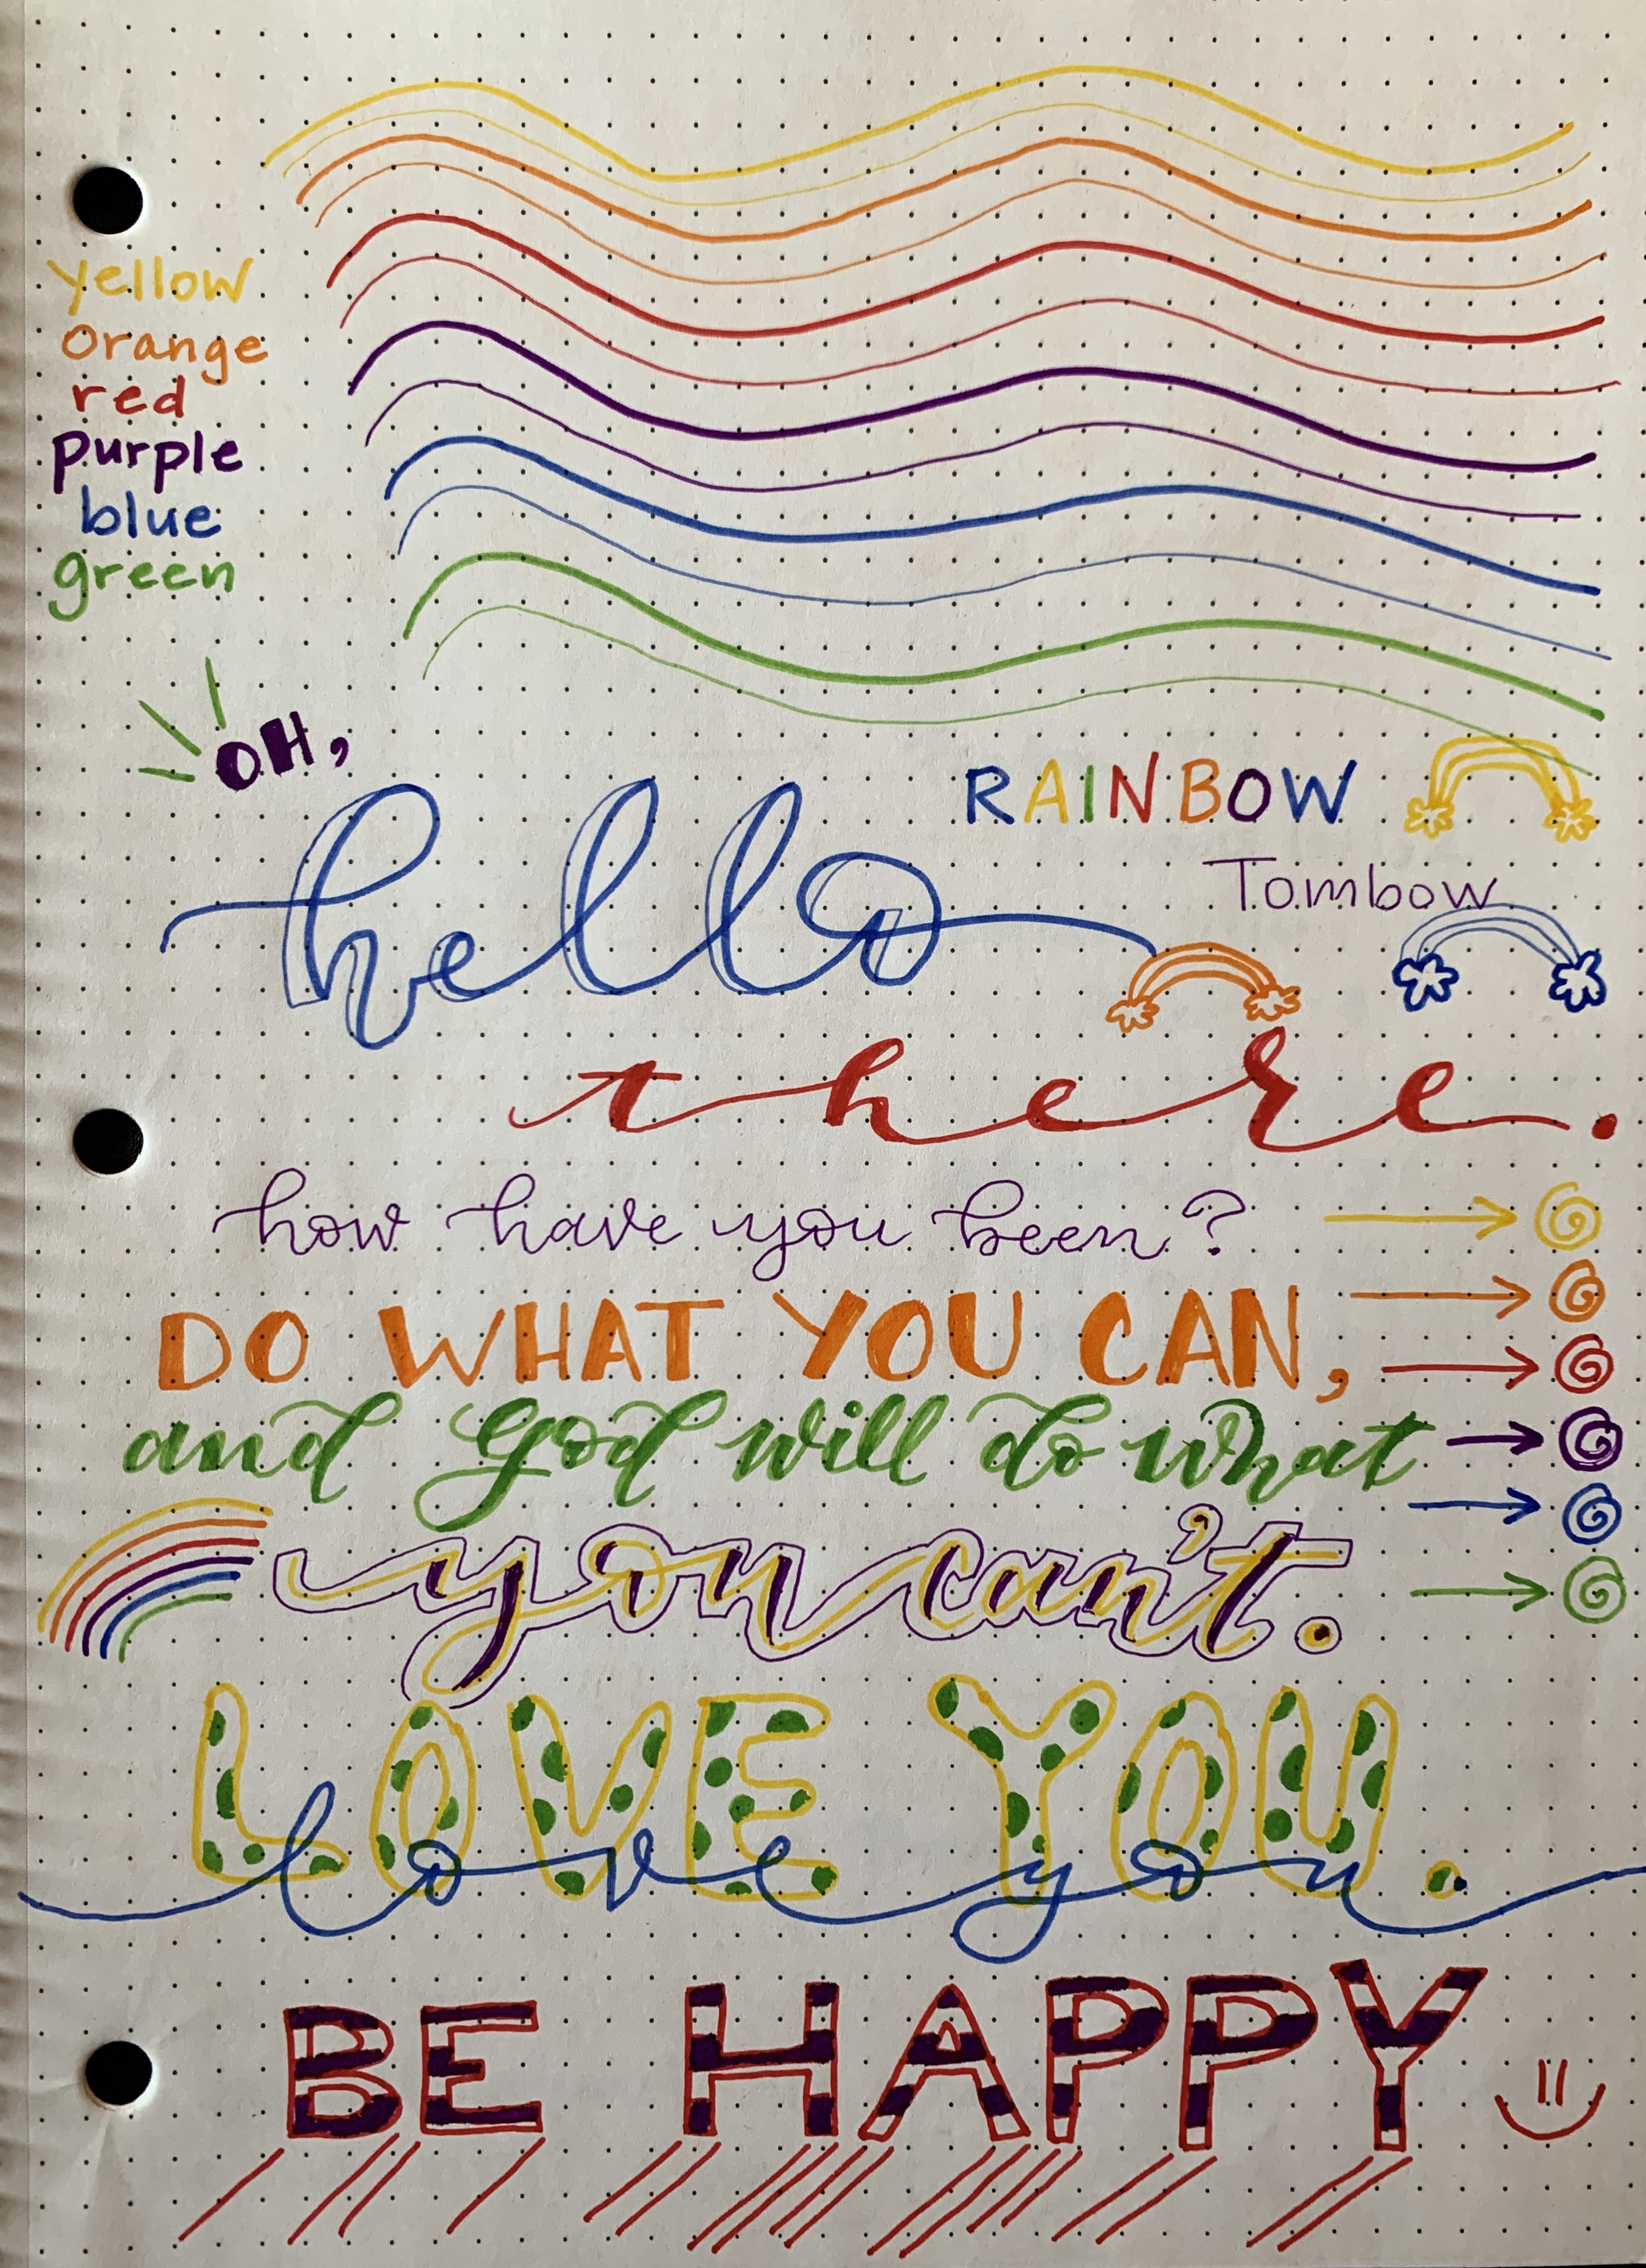 yellow
orange
red
purple
blue
green
OH,
RAINBOW
hello
Tombow
there.
how have you been?
DO WHAT YOU CAN,
and God will do what
you can't.
LOVE YOU.
love you
BE HAPPY